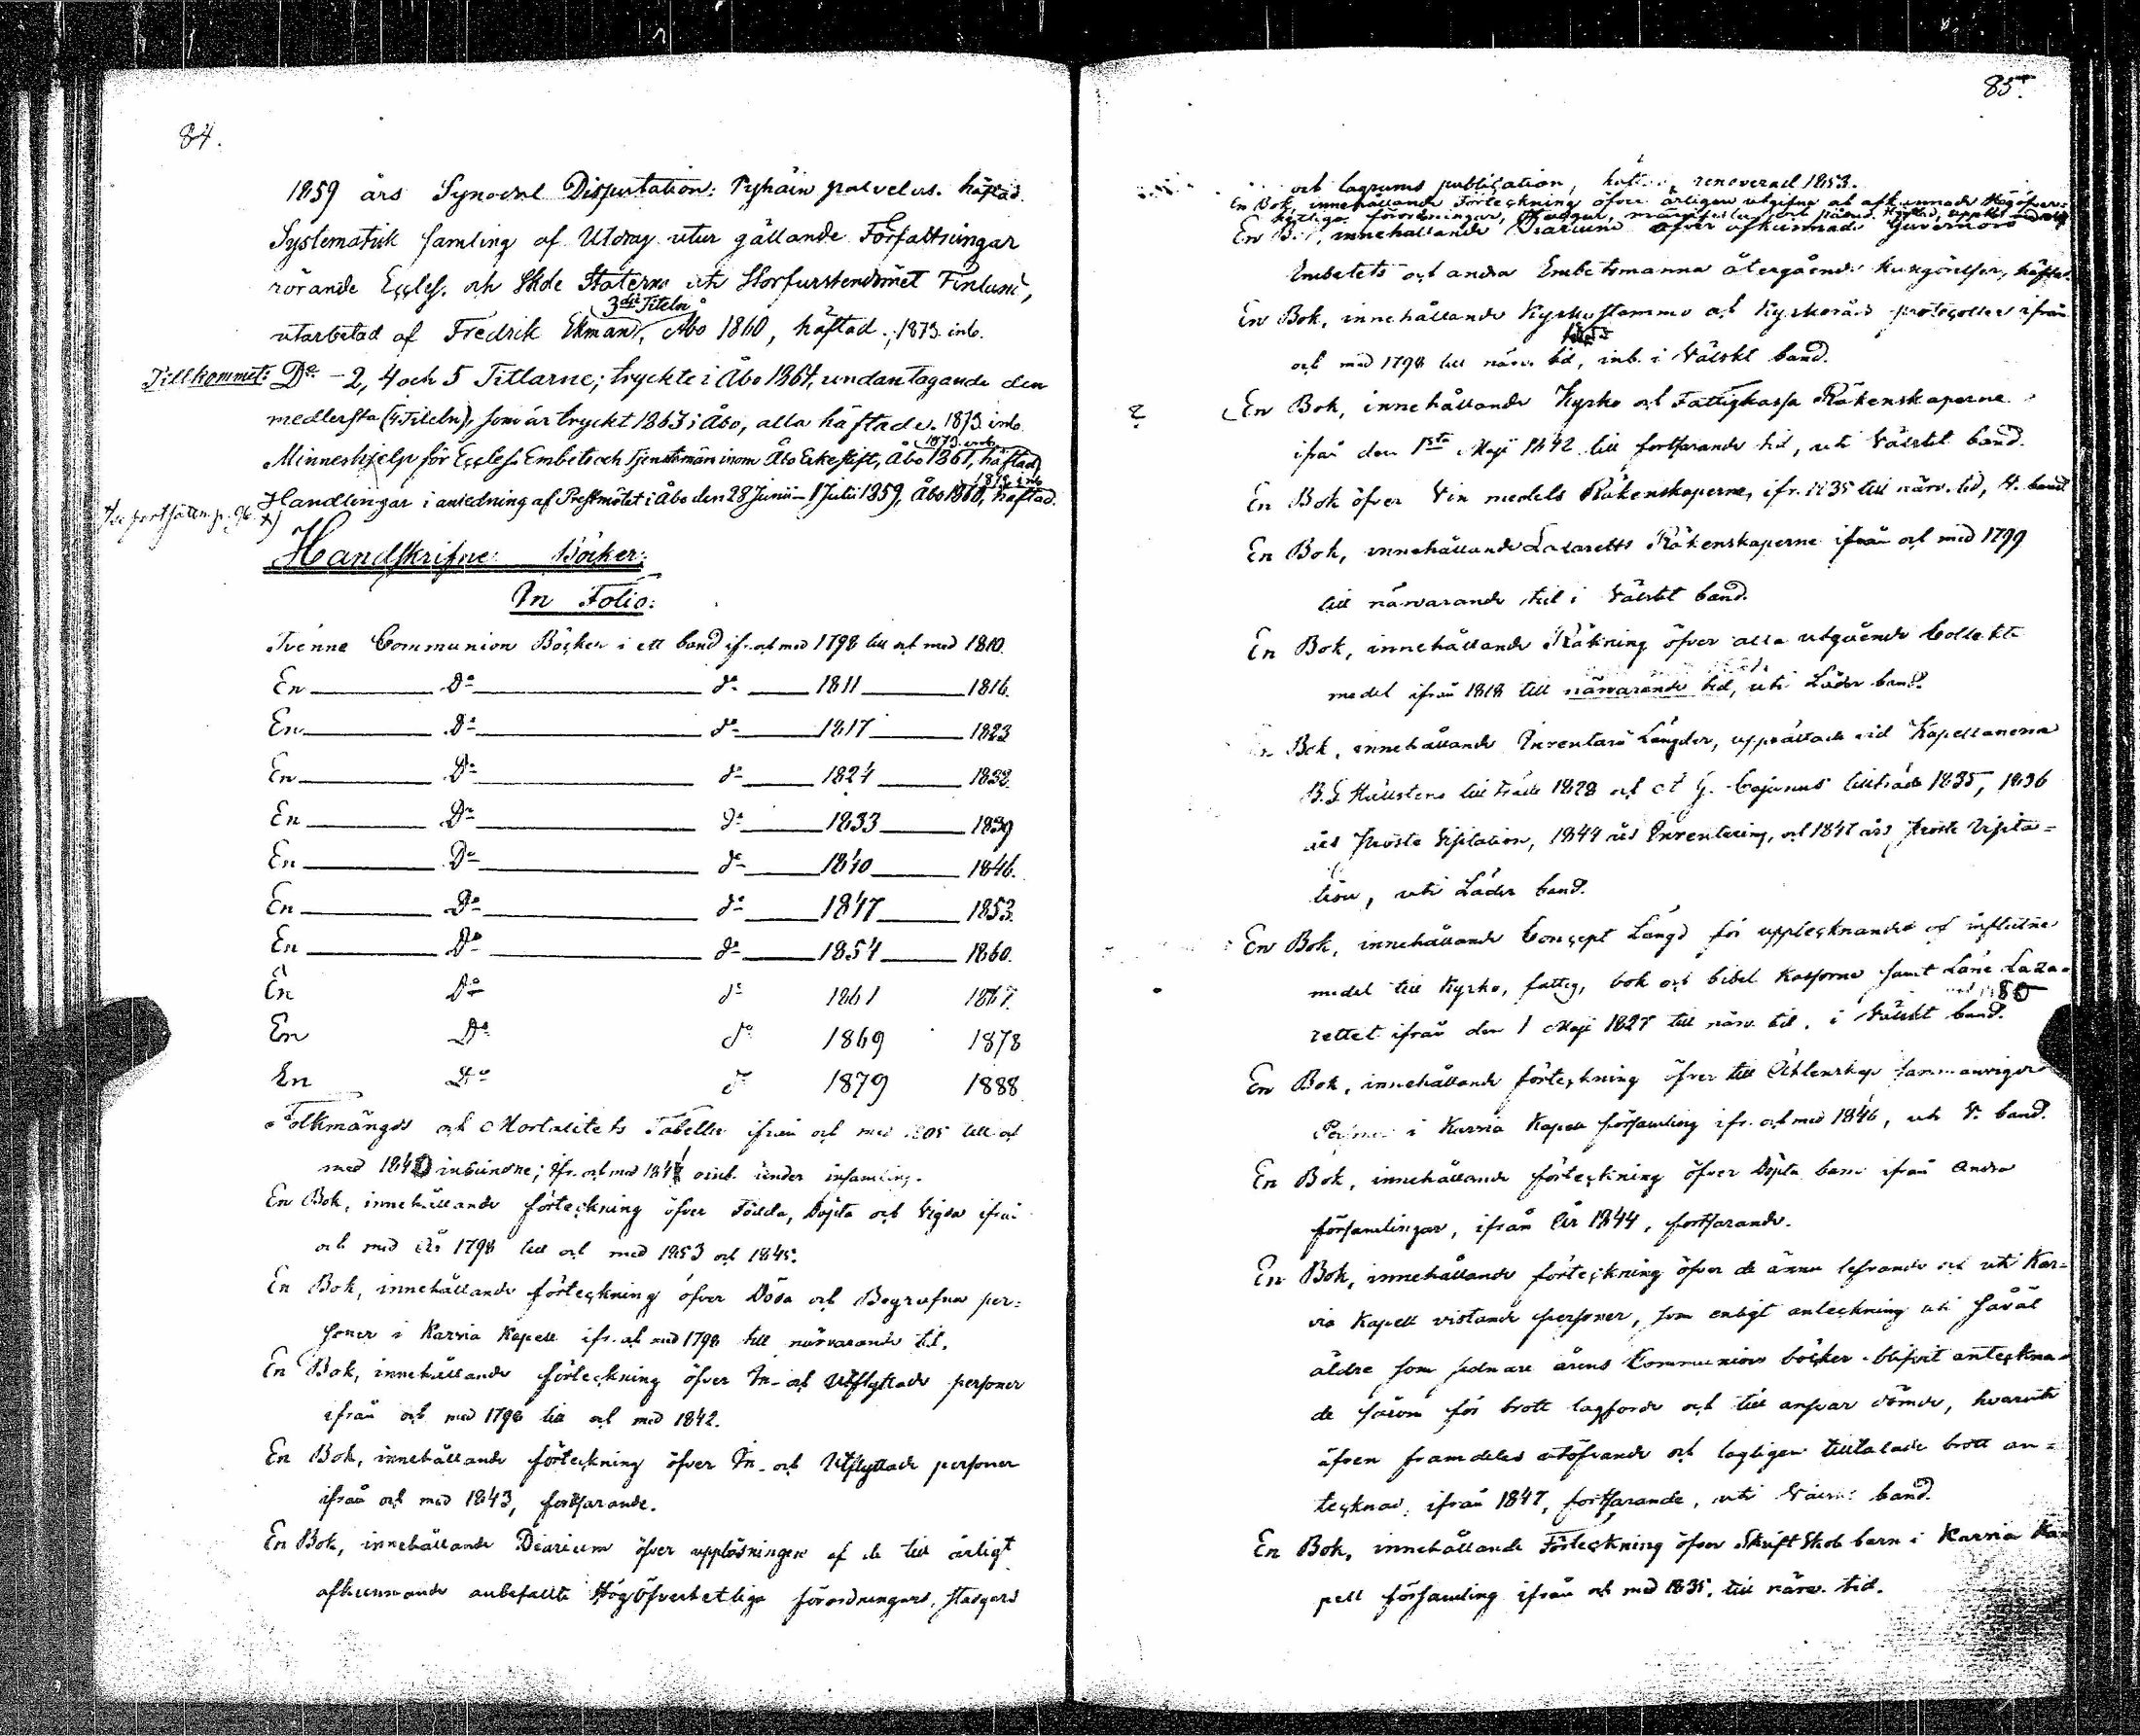 84.
1859 års Synodal Disputation: Pyhäin palvelus. häftad.
Systematisk samling af Utdrag utur gällande Författningar
rörande Eccles. och Skole Staterne uti Storfurstendömet Finland,
3die Titeln
utarbetad af Fredrik Ekman, Åbo 1860, häftad. 1873. inb.
Tillkommit: Do - 2, 4 och 5 Titlarne; tryckte i Åbo 1864, undantagande den
medlersta (4. Titeln), som är tryckt 1863 i Åbo, alla häftade. 1873 inb.
1873. inb.
Minneshjelp för Eccles. Embets och Tjenstemän inom Åbo Erkestift, Åbo 1861, häftad
1873 inb
Handlingar i anledning af Prestmötet i Åbo den 28 Junii - 1 Julii 1859, Åbo 1860, häftad.
Handskrifne Böcker:
In Folio:
Tvenne Communion Böcker i ett band ifr. och med 1798 till och med 1810.
En Do do 1811 1816.
En Do do 1817 1823
En Do do 1824 1832.
En Do do 1833 1839
En Do do 1840 1846.
En Do do 1847 1853.
En Do do 1854 1860.
En Do do 1861 1867.
En Do do 1869 1878
En Do do 1879 1888
Folkmängds och Mortalitets Tabeller ifrån och med 1805 till och
med 1840 inbundne; ifr. och med 1841 oinb. under insamling.
En Bok, innehållande förteckning öfver Födda, Döpta och Vigda ifrån
och med År 1798 till och med 1853 och 1845.
En Bok, innehållande förteckning öfver Döda och Begrafna per=
soner i Karvia Kapell ifr. och med 1798 till närvarande tid.
En Bok, innehållande förteckning öfver In- och Utflyttade personer
ifrån och med 1798 till och med 1842.
En Bok, innehållande förteckning öfver In- och Utflyttade personer
ifrån och med 1843, fortfarande.
En Bok, innehållande Diarium öfver uppläsningen af de till årligt
afkunnande anbefallte Högöfverhetliga förordningars, stadgars
85.
och lagrums publication, renoverad 1853.
En Bok, innehållande Förteckning öfver årligen utgifne och afkunnade Högöfver=
hetliga förordningar, Stadgar,
En Bok, innehållande Diarium öfver afkunnade Guvernörs
Embetets och andra Embetsmanna återgående kungörelser, häftad.
En Bok, innehållande Kyrkostämmo och Kyrkoråds protocoller ifrån
och med 1798 till närv. tid, inb. i Välskt band.
En Bok, innehållande Kyrko och Fattigkassa Räkenskaperne
ifrån den 1sta Maji 1842 till fortfarande tid, uti Välskt band.
En Bok öfver Vin medels Räkenskaperne, ifr. 1835 till närv. tid, V. band
En Bok, innehållande Lazaretts Räkenskaperne ifrån och med 1799
till närvarande tid i Välskt band.
En Bok, innehållande Räkning öfver alla utgående Collekt
medel ifrån 1818 till närvarande tid, uti Läder band.
En Bok, innehållande Inventarii Längder, upprättade vid Kapellanerna
B. G. Hällstens tillträde 1828 och A G. Cajanus tillträde 1835, 1836
års Prosts Visitation, 1844 års Inventering, och 1847 års Prosts Visita=
tion, uti Läder band.
En Bok, innehållande Concept Längd för upptecknandet af influtne
medel till Kyrko, fattig, bok och bibel Kassorne samt Läne Laza=
rettet ifrån den 1 Maji 1827 till närv. tid, i Välskt band.
En Bok, innehållande förteckning öfver till Äktenskap sammanvigde
Personer i Karvia Kapell församling ifr. och med 1846, uti V. band.
En Bok, innehållande förteckning öfver Döpta barn ifrån andra
församlingar, ifrån År 1844, fortfarande.
En Bok, innehållande förteckning öfver de ännu lefvande och uti Kar=
via Kapell vistande personer, som enligt anteckning uti såväl
äldre som sednare årens Communion böcker blifvit anteckna=
de såsom för brott lagförde och till ansvar dömde, hvaruti
äfven framdeles utöfvande och lagligen tilltalade brott an=
tecknas, ifrån 1847, fortfarande, uti band.
En Bok, innehållande Förteckning öfver Skrift Skol barn i Karvia Ka
pell församling ifrån och med 1835, till närv. tid.